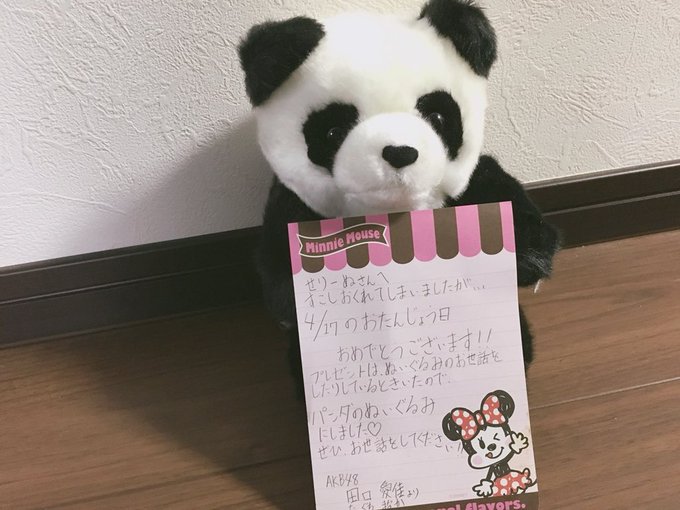 Minnie Mouse
せりーぬさんへ
すこしおくれてしまいましたが...
4/17のおたんじょう日
おめでとうございます!!
プレゼントは、ぬいぐるみのお世話を
したりしているときいたので、
パンダのぬいぐるみ
にしました♡
ぜひ、お世話をしてください
AKB48
田口 愛佳より
flavors.